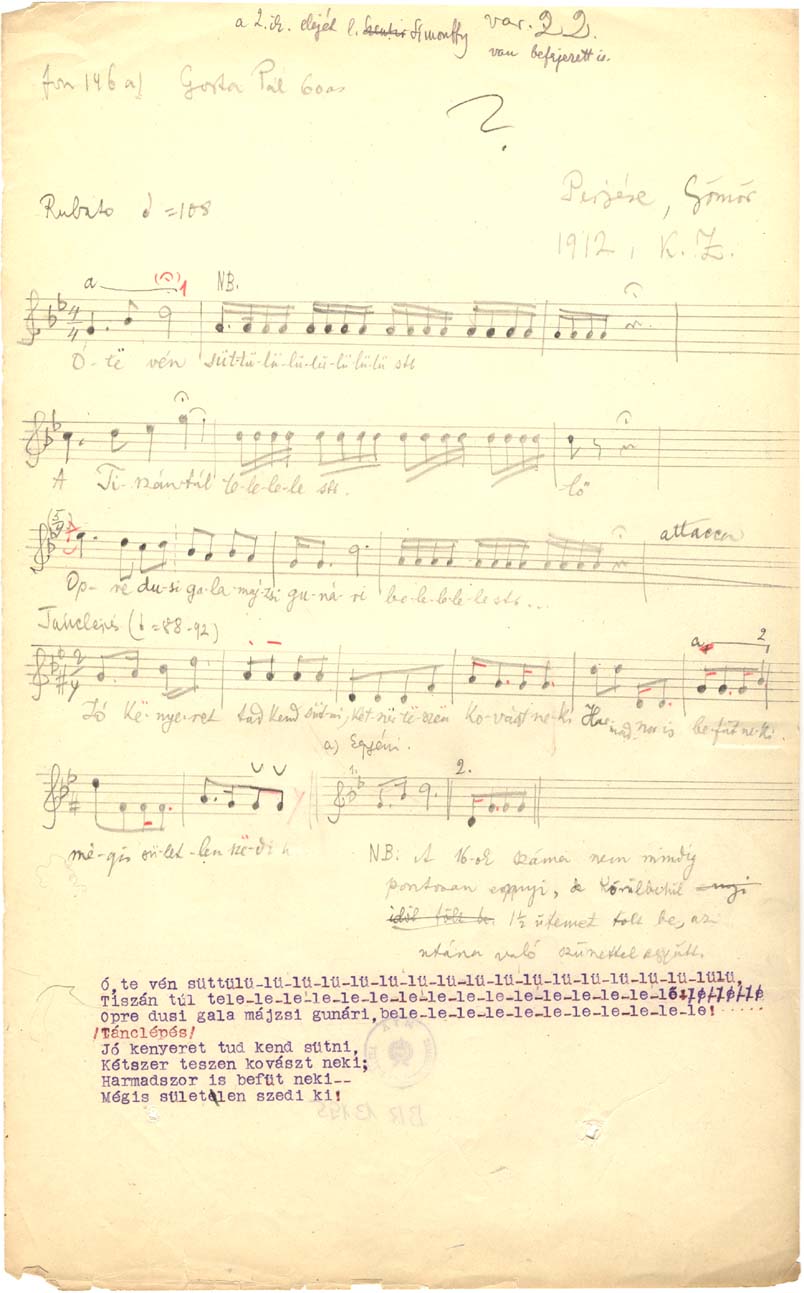 a 2.ik. elejét l. Simonffy var. 22.
van befejezett is.
fon 146 a) Gortva Pál 60 as
?
Rubato = 108
Perjése, Gömör
1912, K. Z.
a 1 NB.
4/4
Ó- të vén süt-tü-lü-lü-lü-lü lü lü stb
A Ti-szán-túl te-le-le-le stb. lő
attacca
Op-re du-si ga-la-máj-zsi gu-ná-ri be-le-le-le-le stb...
Tánclépés ( = 88-92)
a 2.
2/4
Jó ke-nye-ret tud kend süt-ni, Két-szër të-szën Ko-vászt ne-ki Har-mad-szor is be-fűt ne-ki.
a) Egyéni.
1. 2.
mé-gis sü-let-len szë-di
NB: A 16-ok száma nem mindig
pontosan ennyi, de körülbelül
1½ ütemet tölt be, az
utána való szünettel együtt.
ó,te vén süttülü-lü-lü-lü-lü-lü-lü-lü-lü-lü-lü-lü-lü-lü-lülü,
Tiszán túl tele-le-le-le-le-le-le-le-le-le-le-le-le-le-le-lő:
Opre dusi gala májzsi gunári,bele-le-le-le-le-le-le-le-le-le-le!
/Tánclépés/
Jó kenyeret tud kend sütni,
Kétszer teszen kovászt neki;
Harmadszor is befüt neki--
Mégis sületlen szedi ki!